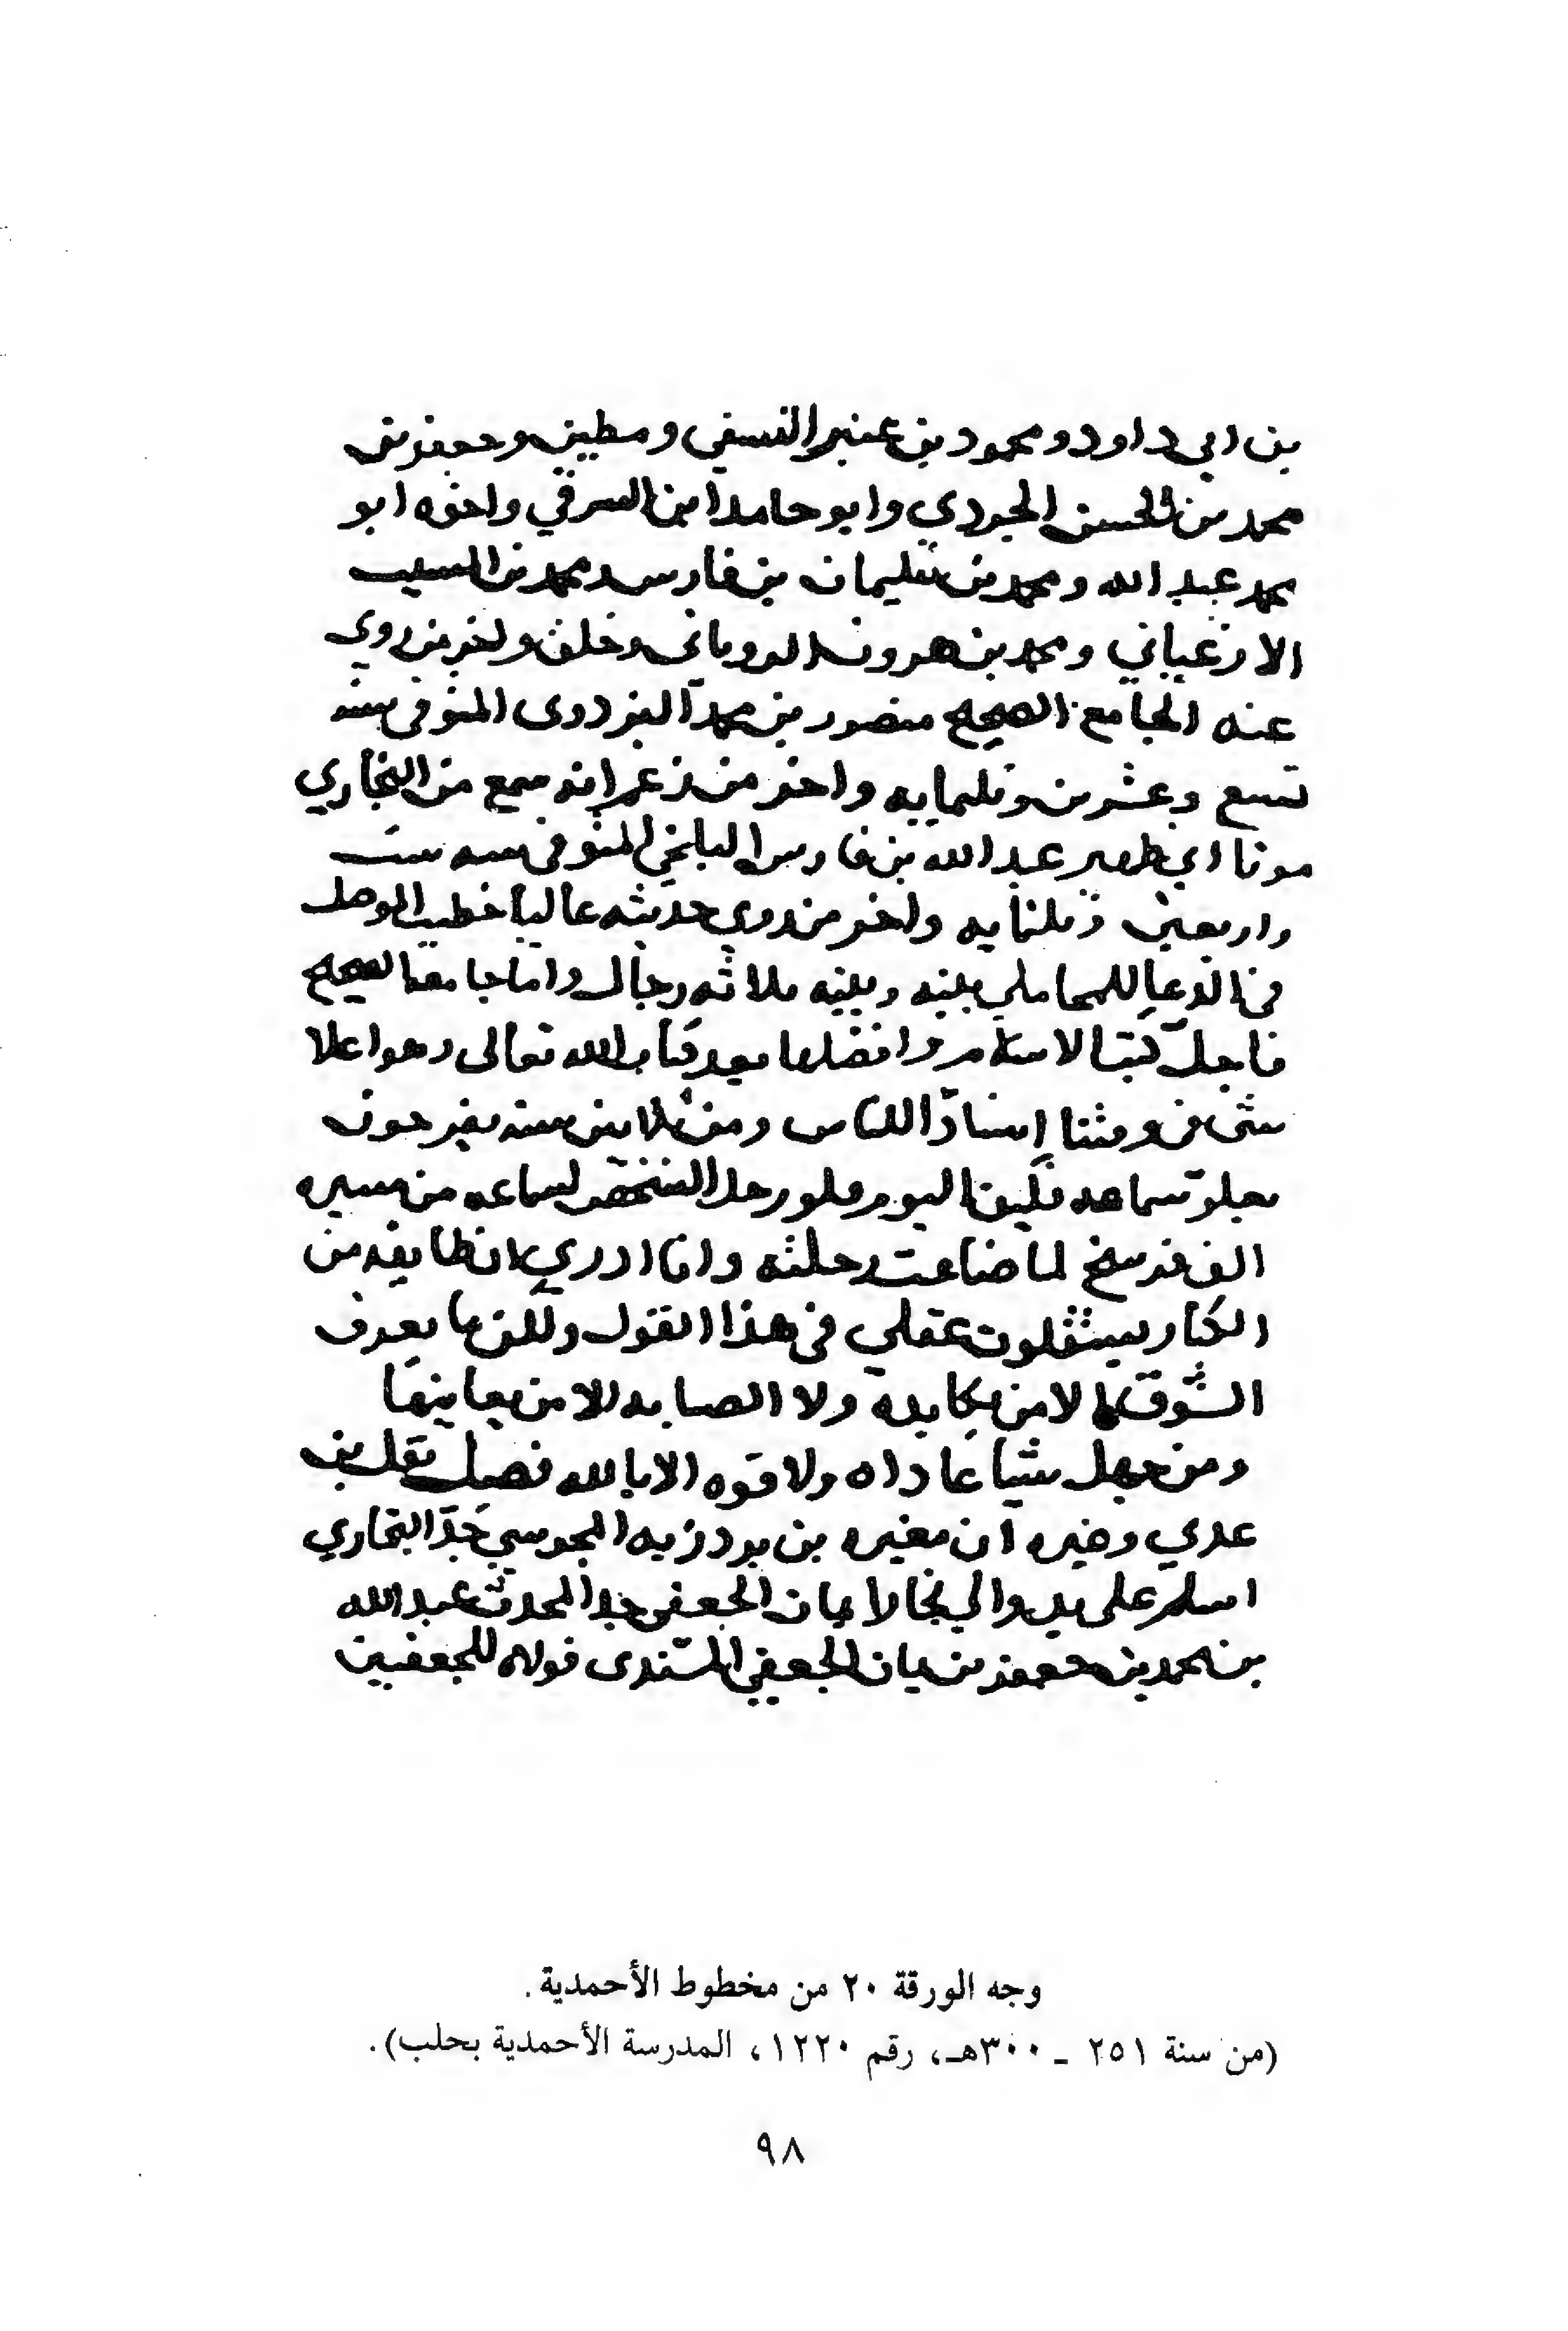 بن ابي داود ومحمود بن عنبر النسفي ومطين وجعفر بن
محمد بن الحسن الجزدي وابو حامد ابن الشرقي واخوه ابو
محمد عبد الله ومحمد بن سليمان بن فارس ومحمد بن المسيب
الارغياني ومحمد بن هرون الروياني وخلق واخر من روي
عنه الجامع الصحيح منصور بن محمد البزدوى المتوفى سنة
تسع وعشرين وثلثمايه واخر من زعم انه سمع من البخاري
موتا ابي ظهير عبد الله بن فارس البلخي المتوفى سنه ست
واربعين وثلثمايه واخر من روي حديثه عاليا خطيب الموصل
في الدعا للمحاملي بينه وبينه ثلاثه رجال واما جامعه الصحيح
فاجل كتب الاسلام وافضلها بعد كتاب الله تعالى وهو اعلا
شى في وقتنا اسنادا للناس ومن ثلاثين سنه يفرحون
بعلو سماعه فكيف اليوم فلو رحل الشخص لسماعه من مسيره
الف فرسخ لما ضاعت رحلته وانا ادري ان طايفه من
الكبار يستقلون عقلي في هذا القول ولكن ما يعرف
الشوق الا من يكابده ولا الصبابه الا من يعانيها
ومن جهل شيا عاداه ولا قوه الا بالله فصل نقل بن
عدي وغيره ان مغيره بن بردزبه المجوسي جد البخاري
اسلم على يد والي بخارا يمان الجعفي جد المحدث عبد الله
بن محمد بن جعفر بن يمان الجعفي المسندى فولاه للجعفيين
وجه الورقة ٢٠ من مخطوط الأحمدية.
(من سنة ٢٥١ ـ ٣٠٠هـ، رقم ١٢٢٠، المدرسة الأحمدية بحلب).
٩٨